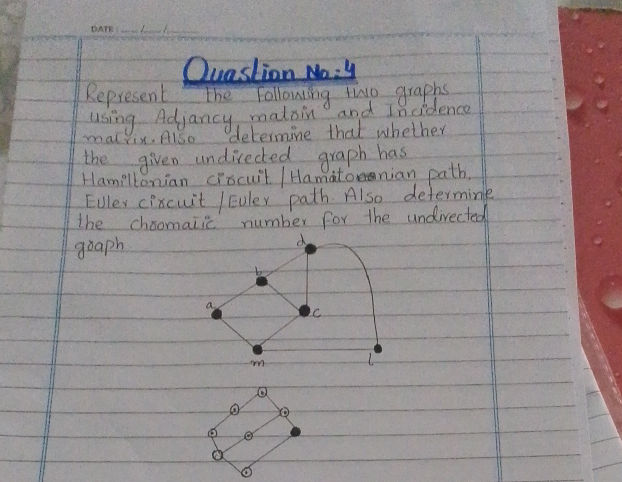 DATE: __/__/__
Quastion No:4
Represent the following two graphs
using Adjancy matoin and Incidence
matrix. Also determine that whether
the given undirected graph has
Hamiltonian circuit / Hamatonenian path,
Euler circuit / Euler path. Also determine
the choomatic number for the undirected
goaph
d
b
a
c
m
l